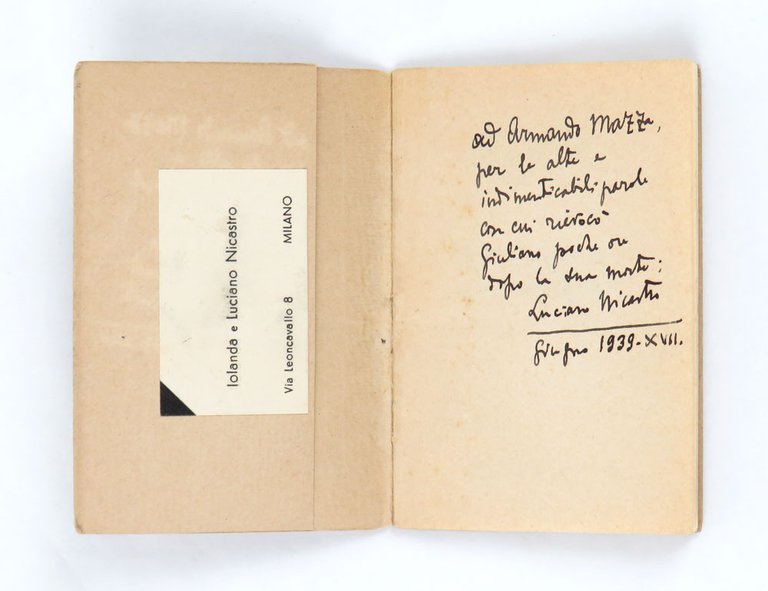 Iolanda e Luciano Nicastro
Via Leoncavallo 8 MILANO
ad Armando Mazza,
per le alte e
indimenticabili parole
con cui rievocò
Giuliano poche ore
dopo la sua morte:
Luciano Nicastro
Giugno 1939-XVII.